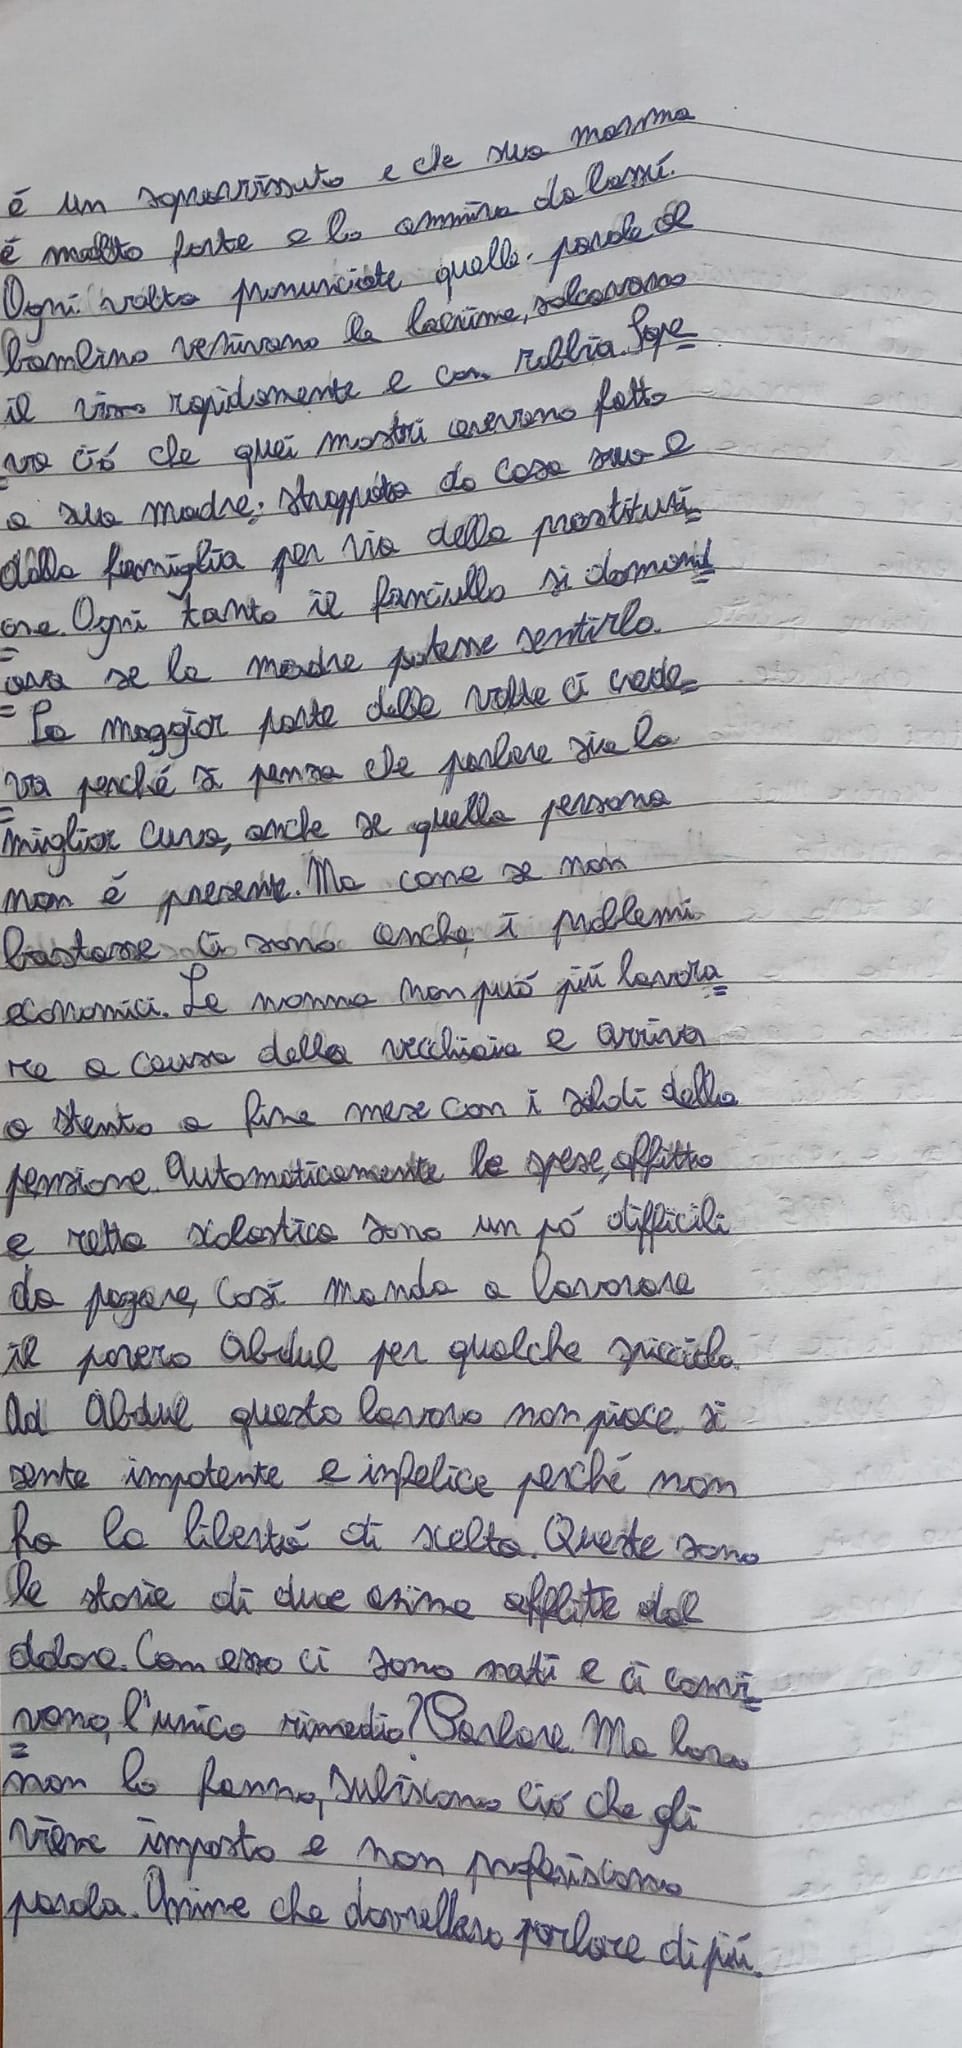 é un sopravvissuto e che sua mamma
é molto forte e lo ammira da lassú.
Ogni volta pronunciate quelle parole al
bambino venivano le lacrime, solcavano
il viso rapidamente e con rabbia. Sape=
=va ció che quei mostri avevano fatto
a sua madre: strappata da casa sua e
dalla famiglia per via della prostituzi=
=one. Ogni tanto il fanciullo si domand=
=ava se la madre potesse sentirlo.
La maggior parte delle volte ci crede=
=va perché si pensa che parlare sia la
miglior cura, anche se quella persona
non é presente. Ma come se non
bastasse ci sono anche i problemi
economici. La nonna non puó piú lavora=
re a causa della vecchiaia e arriva
a stento a fine mese con i soldi della
pensione. Automaticamente le spese, affitto
e retta scolastica sono un pó difficili
da pagare, cosí manda a lavorare
il povero Abdul per qualche spicciolo.
Ad Abdul questo lavoro non piace si
sente impotente e infelice perché non
ha la libertá di scelta. Queste sono
le storie di due anime afflitte dal
dolore. Con esso ci sono nati e ci convi=
=vono, l'unico rimedio? Parlare. Ma loro
non lo fanno, subiscono ció che gli
viene imposto e non proferiscono
parola. Anime che dovrebbero parlare di piú.